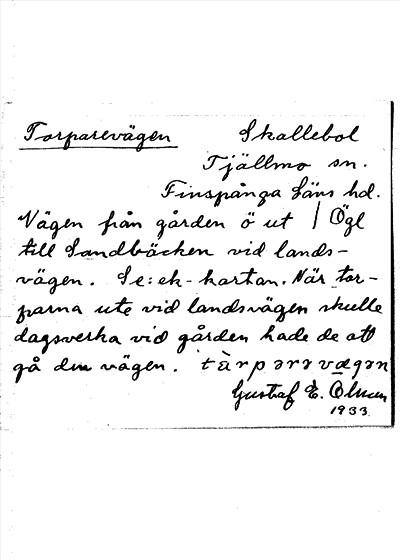 Torparevägen Skallebol
Tjällmo sn.
Finspånga läns hd.
Vägen från gården ö ut / Ögl
till Sandbäcken vid lands-
vägen. Se: ek-kartan. När tor-
parna ute vid landsvägen skulle
dagsverka vid gården hade de att
gå den vägen.
Gustaf E.
1933